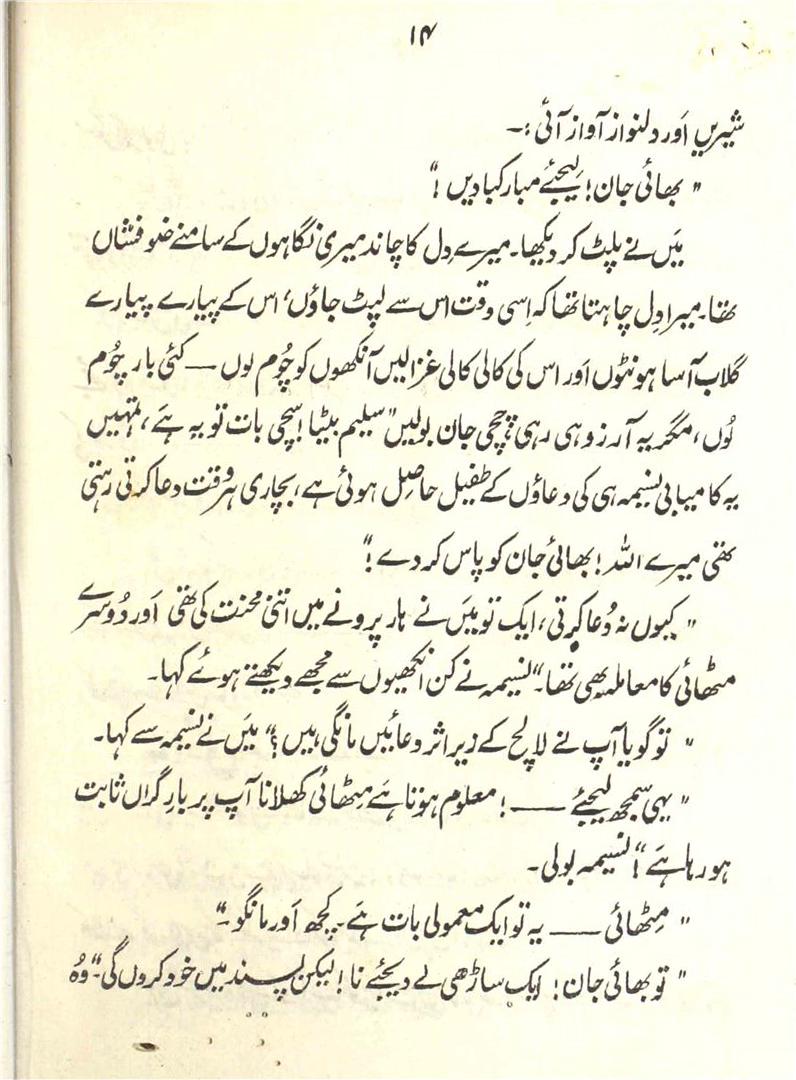 ۱۴
شیریں اَور دلنواز آواز آئی :۔
" بھائی جان! لیجئے مبارکبادیں !"
میَں نے پلٹ کر دیکھا۔ میرے دِل کا چاند میری نگاہوں کے سامنے ضو فشاں
تھا۔ میرا دِل چاہتا تھا کہ اِسی وقت اس سے لپٹ جاؤں، اس کے پیارے پیارے
گلاب آسا ہونٹوں اَور اس کی کالی کالی غزالیں آنکھوں کو چُوم لوں — کئی بار چوُم
لوُں، مگر یہ آرزو ہی رہی، چچی جان بولیں "سلیم بیٹا! سچی بات تو یہ ہَے، تمہیں
یہ کامیابی نسیمہ ہی کی دعاؤں کے طفیل حاصِل ہوئی ہے، بچاری ہر وقت دعا کرتی رہتی
تھی میرے اللہ! بھائی جان کو پاس کر دے!"
" کیوں نہ دُعا کرتی، ایک تو میَں نے ہار پرونے میں اتنی محنت کی تھی اَور دُوسرے
مٹھائی کا معاملہ بھی تھا۔" نسیمہ نے کن انکھیوں سے مجھے دیکھتے ہوئے کہا۔
" تو گویا آپ نے لالچ کے زیر اثر دعائیں مانگی ہیں؟" میَں نے نسیمہ سے کہا۔
" یہی سمجھ لیجئے —! معلوم ہوتا ہَے مِٹھائی کھلانا آپ پر بارِ گراں ثابت
ہو رہا ہَے!" نسیمہ بولی۔
" مِٹھائی — یہ تو ایک معمولی بات ہَے۔ کچھ اَور مانگو۔"
" تو بھائی جان! ایک ساڑھی لے دیجئے نا! لیکن پسند میں خود کروں گی۔" وُہ